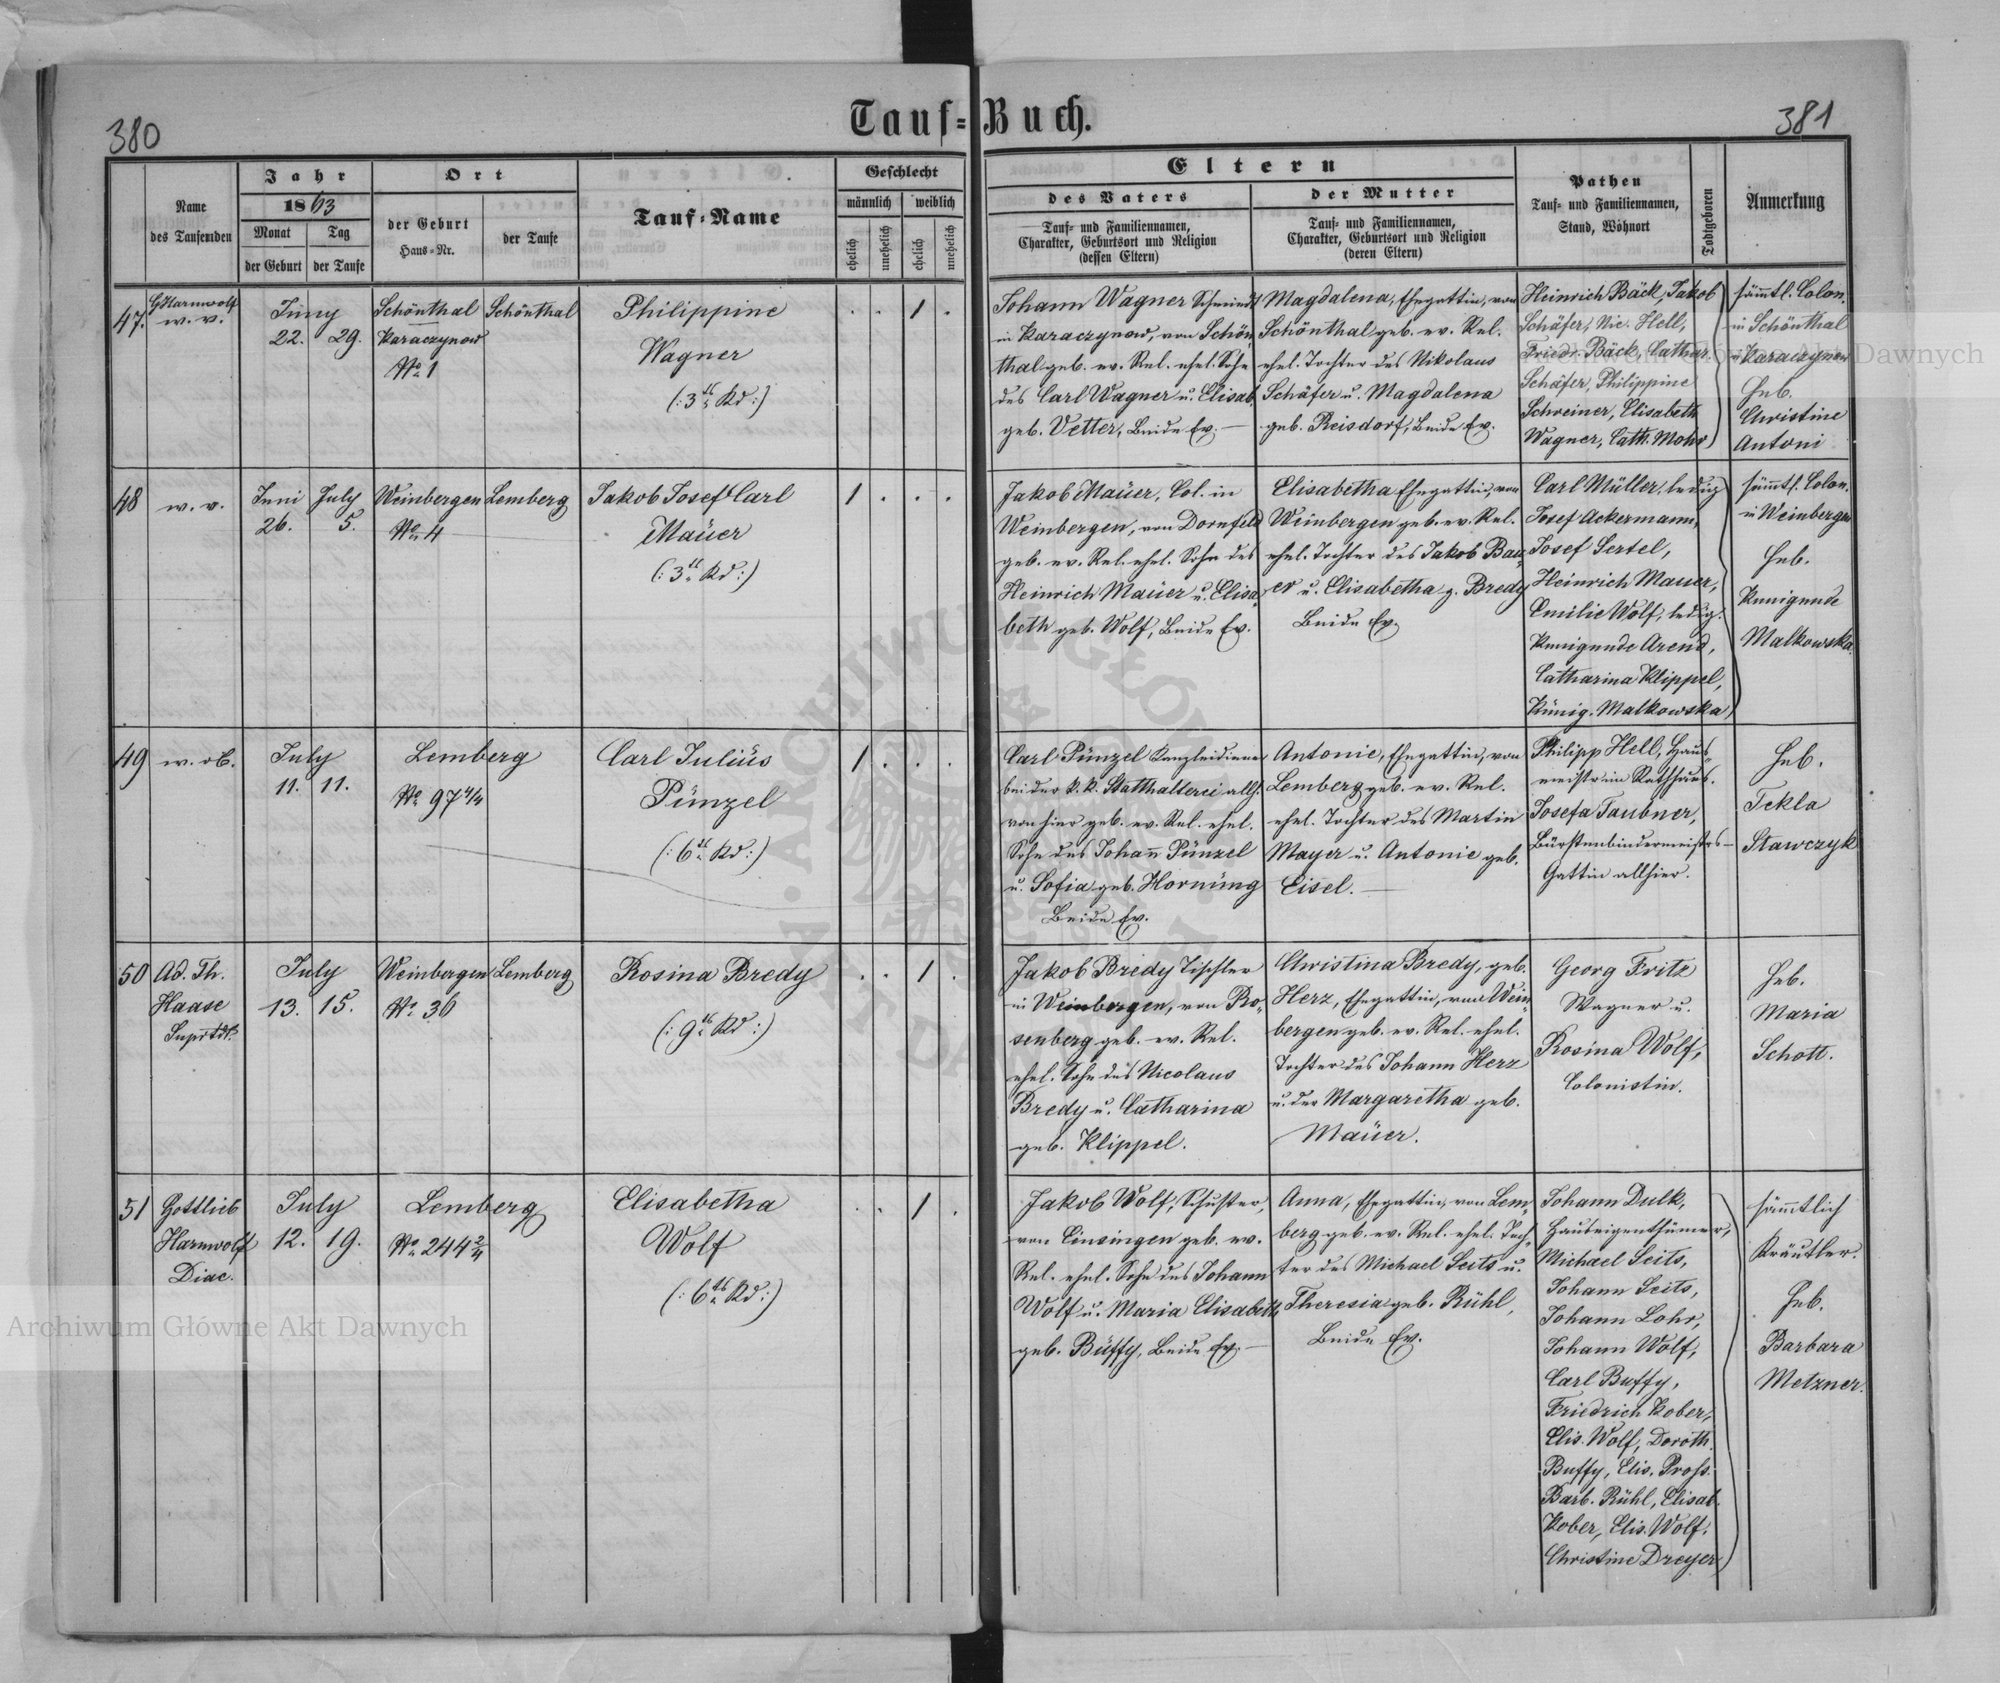 380
Tauf-Buch.
381
Name
des Taufenden
Jahr
1863
Monat
Tag
der Geburt
der Taufe
Ort
der Geburt
Haus-Nr.
der Taufe
Tauf-Name
Geschlecht
männlich
weiblich
ehelich
unehelich
ehelich
unehelich
Eltern
des Vaters
der Mutter
Tauf- und Familiennamen,
Charakter, Geburtsort und Religion
(dessen Eltern)
Tauf- und Familiennamen,
Charakter, Geburtsort und Religion
(deren Eltern)
Pathen
Tauf- und Familiennamen,
Stand, Wohnort
Todtgeboren
Anmerkung
47.
G Harnwolf
w. v.
Juny
22. 29.
Schönthal
Karaczynow
No 1
Schönthal
Philippine
Wagner
(: 3tes Kd :)
1
Johann Wagner Schmiedt
in Karaczynow, von Schön-
thal geb. ev. Rel. ehel. Sohn
des Carl Wagner u. Elisab.
geb. Vetter, Beide Ev.
Magdalena, Ehegattin, von
Schönthal geb. ev. Rel.
ehel. Tochter des Nikolaus
Schäfer u. Magdalena
geb. Reisdorf, Beide Ev.
Heinrich Bäck, Jakob
Schäfer, Nic. Hell,
Friedr. Bäck, Cathar.
Schäfer, Philippine
Schreiner, Elisabeth
Wagner, Cath. Mohr
sämtl. Colon.
in Schönthal
u Karaczynow
Heb.
Christine
Antoni
48
w. v.
Juni July
26. 5.
Weinbergen
No 4
Lemberg
Jakob Josef Carl
Maüer
(: 3tes Kd :)
1
Jakob Maüer, Col. in
Weinbergen, von Dornfeld
geb. ev. Rel. ehel. Sohn des
Heinrich Maüer u. Elisa-
beth geb. Wolf, Beide Ev.
Elisabetha Ehegattin, von
Weinbergen geb. ev. Rel.
ehel. Tochter des Jakob Bau-
er u. Elisabetha g. Bredy
Beide Ev.
Carl Müller, ledig
Josef Ackermann,
Josef Sertel,
Heinrich Mauer,
Emilie Wolf, ledig.
Kunigunde Arend,
Catharina Klippel,
Künig. Malkowska
sämtl. Colon.
in Weinbergen
Heb.
Kunigunde
Malkowska.
49
w. ob.
July
11. 11.
Lemberg
No 97 4/4
Carl Julius
Pünzel
(: 6tes Kd :)
1
Carl Pünzel Kanzleidiener
bei der k. k. Statthalterei allh.
von hier geb. ev. Rel. ehel.
Sohn des Johann Pünzel
u. Sofia geb. Hornüng
Beide Ev.
Antonie, Ehegattin, von
Lemberg geb. ev. Rel.
ehel. Tochter des Martin
Mayer u. Antonie geb.
Eisel.
Philipp Hell, Haus-
meister im Rathhaus.
Josefa Taubner,
Bürstenbindermeisters-
Gattin allhier.
Heb.
Tekla
Stawczyk
50
Ad. Th.
Haase
Suprtdt.
July
13. 15.
Weinbergen
No 36
Lemberg
Rosina Bredy
(: 9tes Kd :)
1
Jakob Bredy Tischler
in Weinbergen, von Ro-
senberg geb. ev. Rel.
ehel. Sohn des Nicolaus
Bredy u. Catharina
geb. Klippel.
Christina Bredy, geb.
Herz, Ehegattin, von Wein-
bergen geb. ev. Rel. ehel.
Tochter des Johann Herz
u. der Margaretha geb.
Maüer.
Georg Fritz
Wagner u.
Rosina Wolf,
Colonistin.
Heb.
Maria
Schott.
51
Gottlieb
Harnwolf
Diac.
July
12. 19.
Lemberg
No 244 2/4
Elisabetha
Wolf
(: 6tes Kd :)
1
Jakob Wolf, Schuster,
von Einsingen geb. ev.
Rel. ehel. Sohn des Johann
Wolf u. Maria Elisabeth
geb. Büffy, Beide Ev.
Anna, Ehegattin, von Lem-
berg geb. ev. Rel. ehel. Toch-
ter des Michael Seits u.
Theresia geb. Rühl,
Beide Ev.
Johann Dulk,
Hauseigenthümer,
Michael Seits,
Johann Seits,
Johann Lohr,
Johann Wolf,
Carl Buffy,
Friedrich Kober,
Elis. Wolf, Doroth.
Buffy, Elis. Profs.
Barb. Rühl, Elisab.
Kober, Elis. Wolf.
Christine Dreyer
sämtlich
Kräutler.
Heb.
Barbara
Metzner.
Archiwum Główne Akt Dawnych